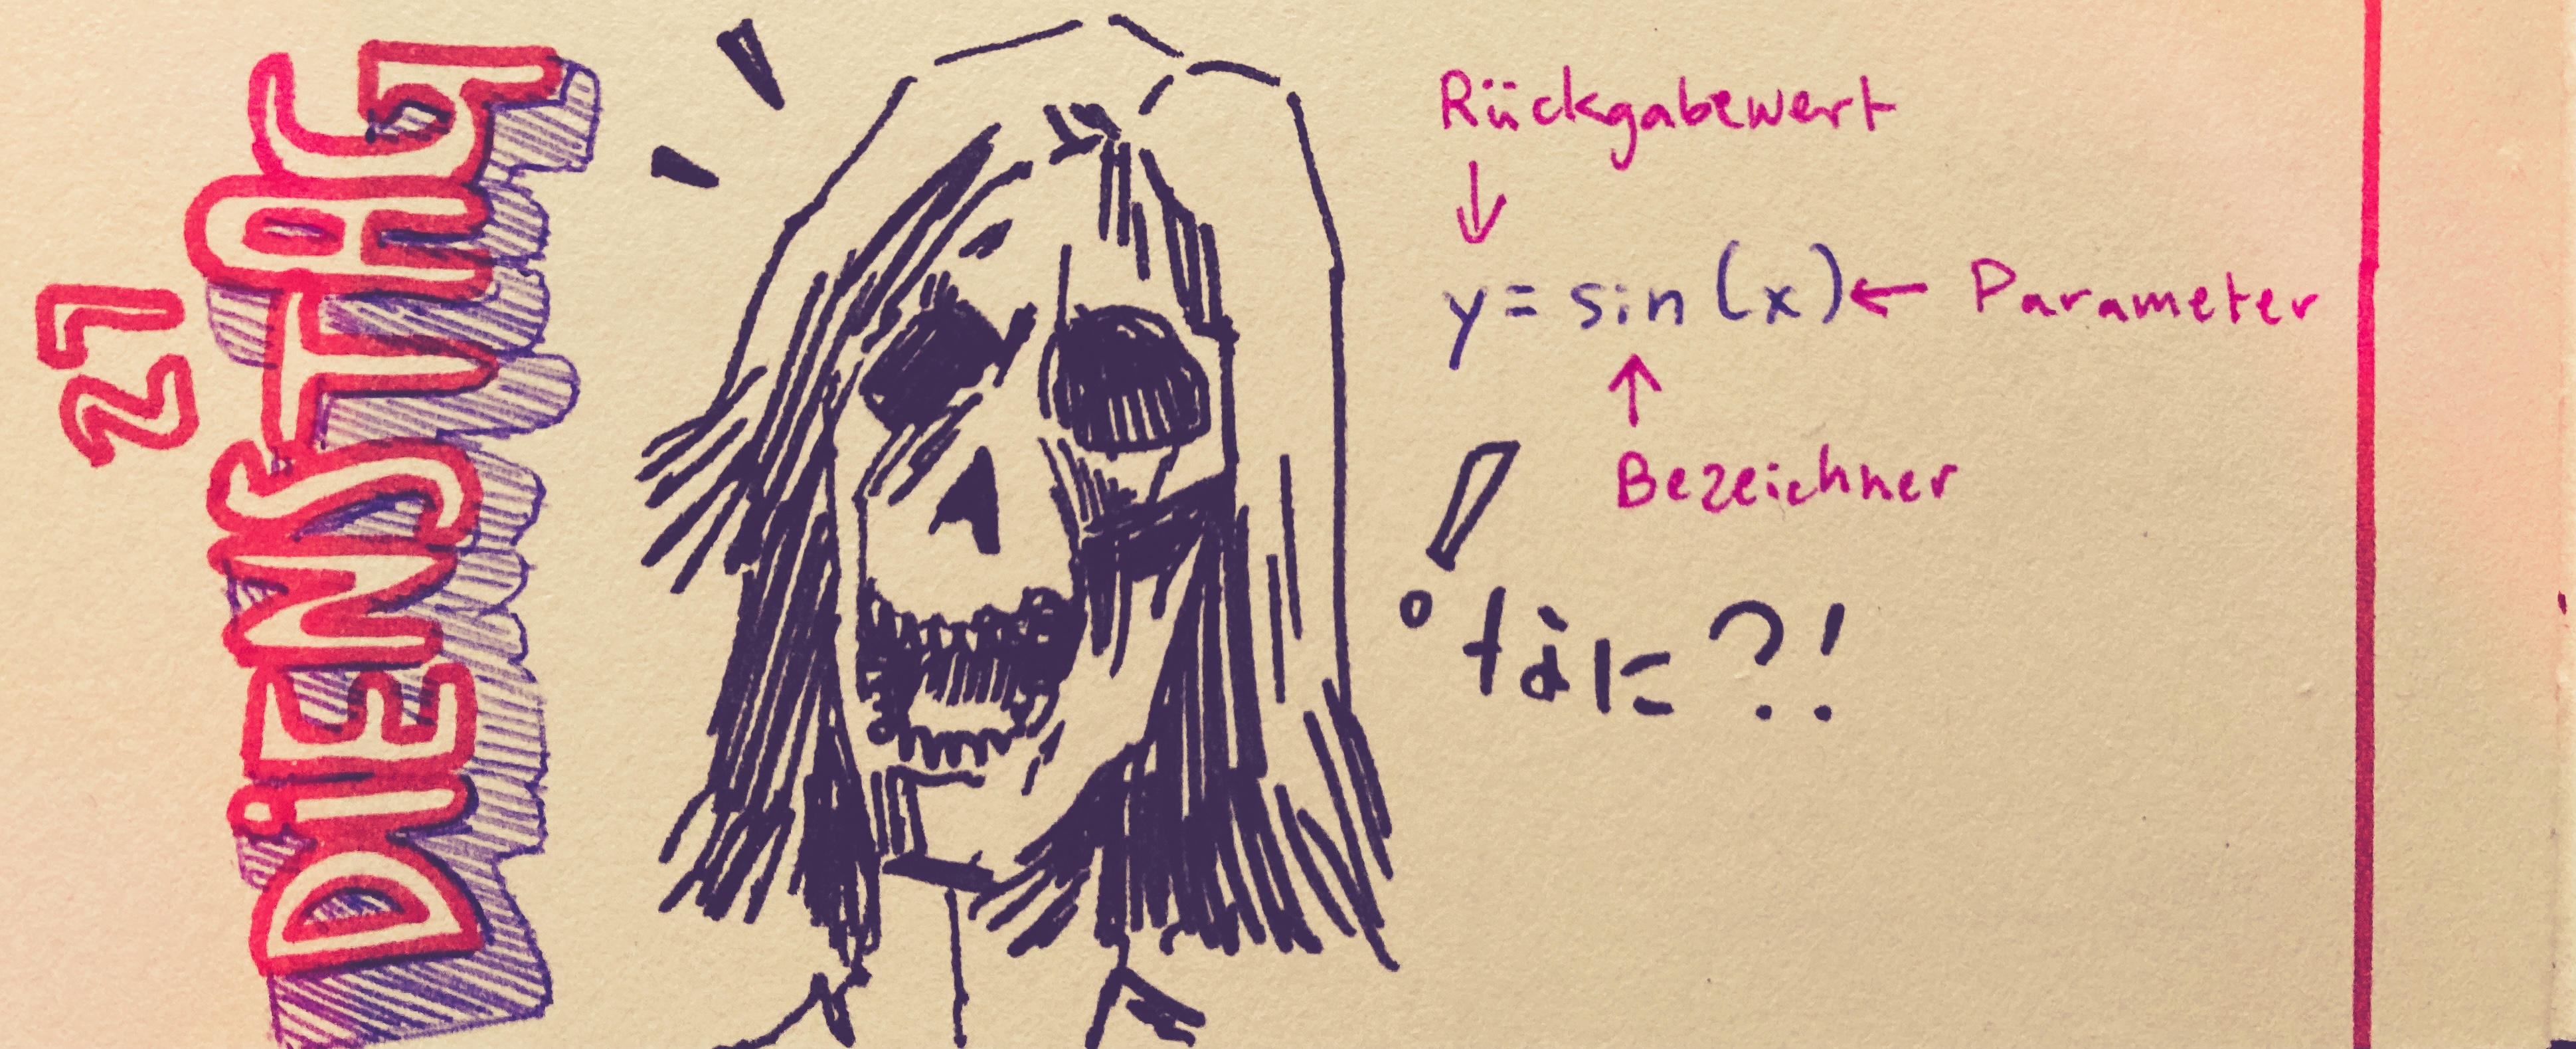 21
DiENSTAG
Rückgabewert
↓
y = sin (x) ← Parameter
↑
Bezeichner
なに?!